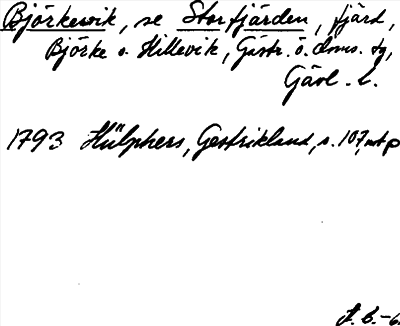 Björkewik, se Storfjärden, fjärd,
Björke o. Hillevik, Gästr. ö. doms. tg,
Gävl. l.
1793 Hülphers, Gestrikland, s. 107, nt p